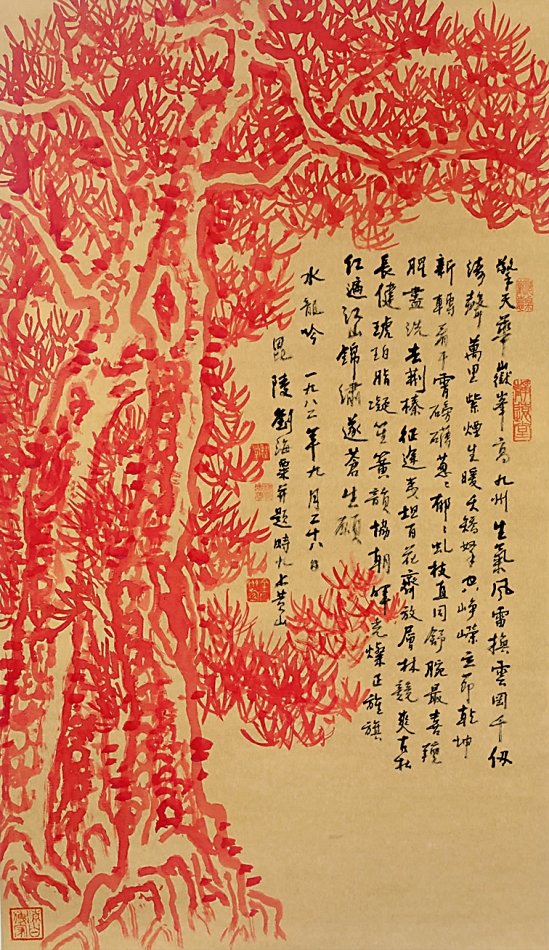 擎天華嶽峯高九州生氣風雷摂雲岡千仭
濤聲萬里紫煙生暖夭矯峥嶸立節乾坤
新轉看干霄磅礴蔥蔥郁郁虬枝直同舒腕最喜
腥盡洗去荆榛征途多坦百花齊放層林競爽古秋
長健琥珀脂凝笙簧韻協朝暉光燦正旌旗
紅遍江山錦繡遂蒼生願
水龍吟 一九八二年九月二十八日
昆陵劉海粟并題時九上黄山